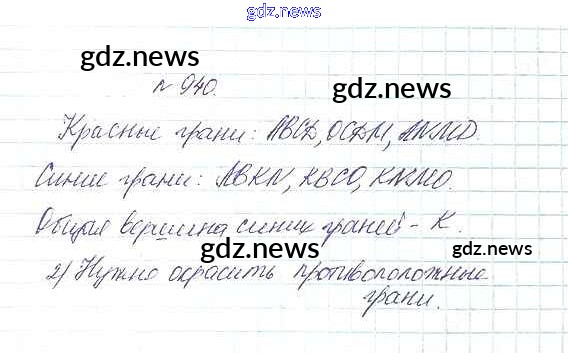 gdz.news
gdz.news
gdz.news
№ 940.
gdz.news
Красные грани: ABCD, OCDM, ANMD.
Синие грани: ABKN, KBCO, KNMO.
Общая вершина синих граней - K.
gdz.news
gdz.news
2) Нужно окрасить противоположные
грани.
gdz.news